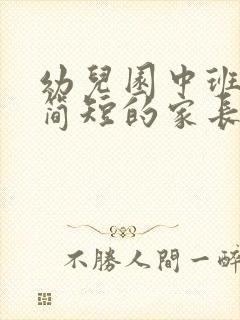 幼兒園中班
简短的家長
不勝人間一醉